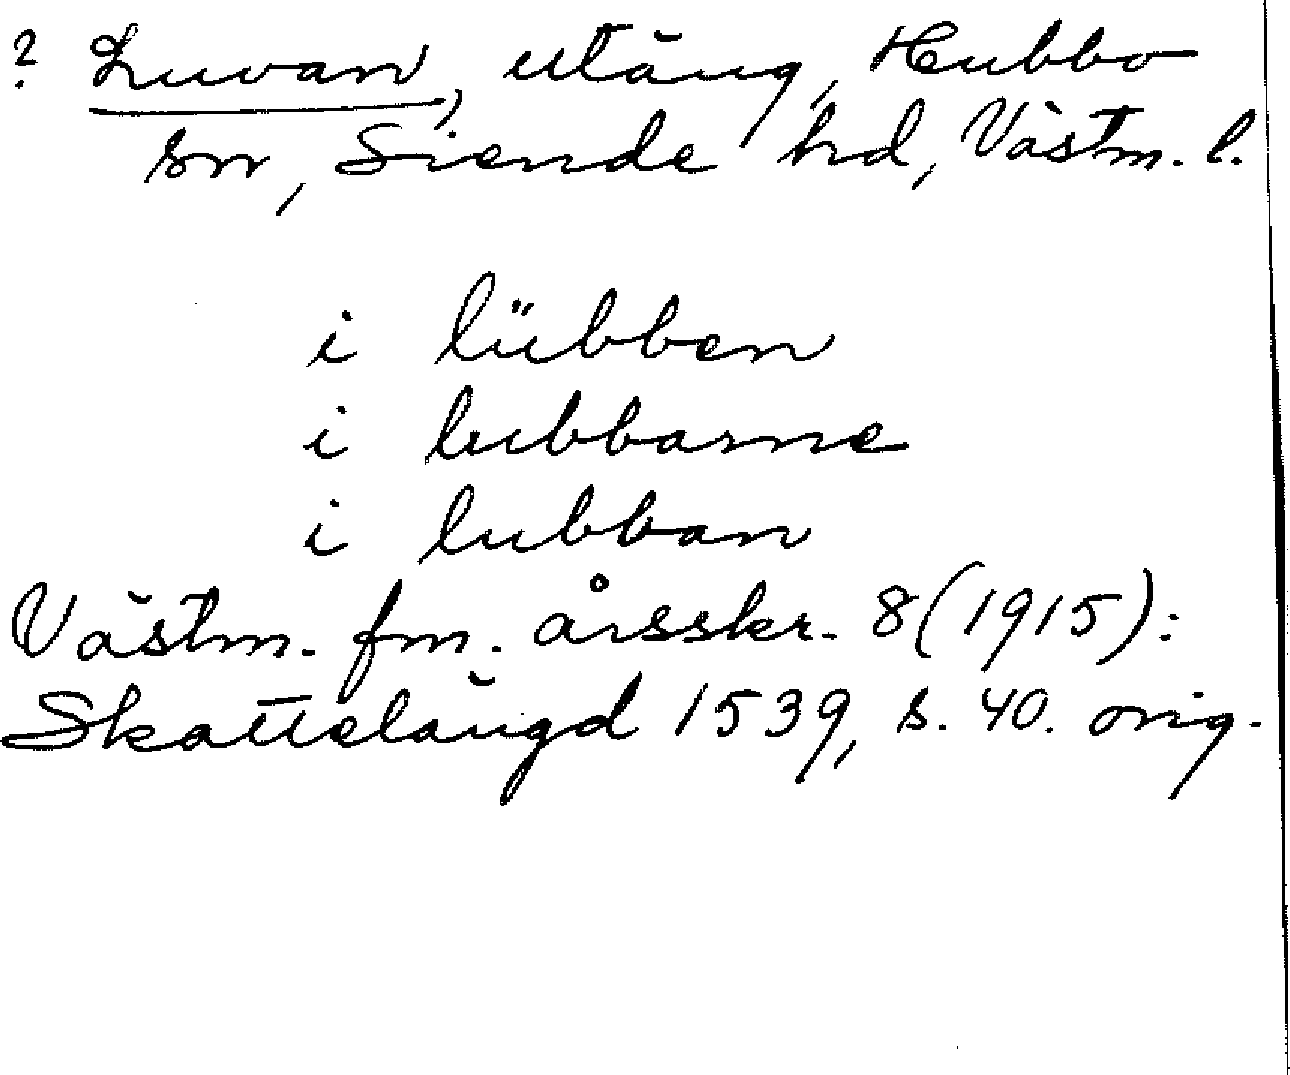 ? Luvan, utäng, Hubbo
sn, Siende hd, Västm. l.
i lübben
i lubbarne
i lubban
Västm. fm. årsskr. 8 (1915):
Skattelängd 1539, s. 40. orig.